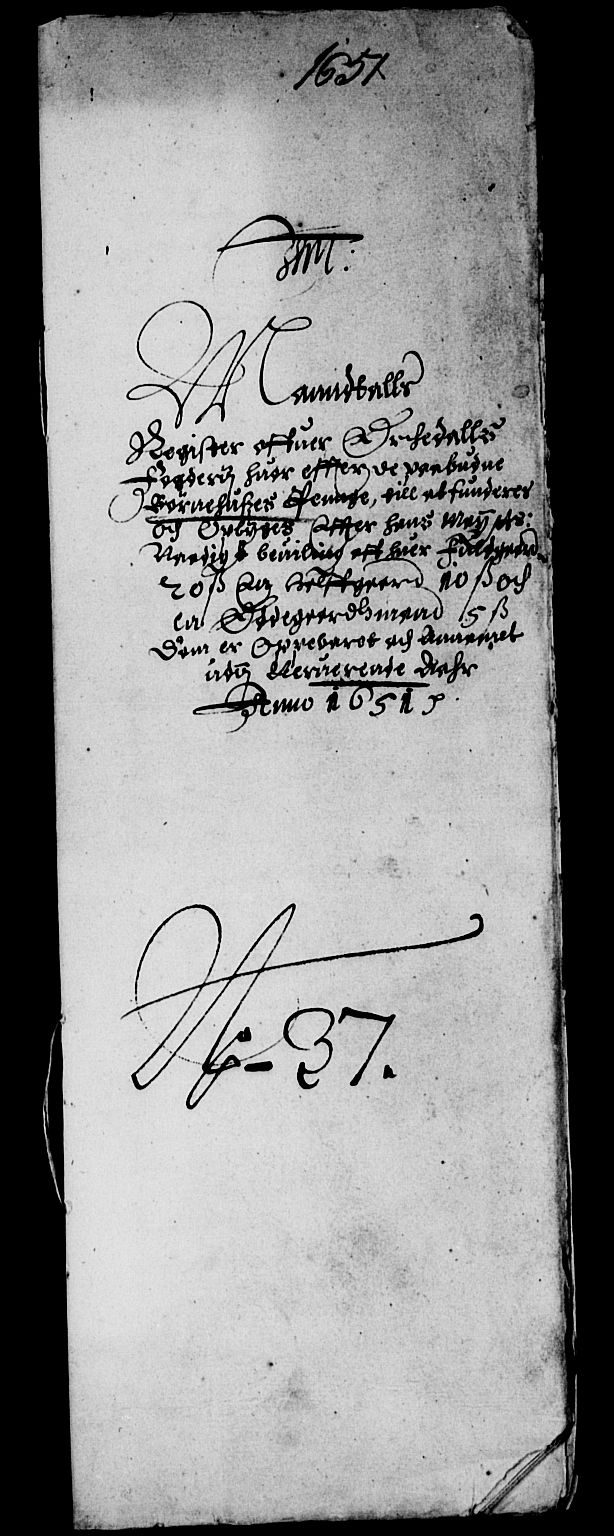 1651
Manndtalls
Register offuer Orchedalls
Fogderij huor effter de paabudne
Børnehußes Penge, till at funderes
och Opbyges Effter hans Maÿtts:
Naadigst beuiling aff huer Fuldgaard
20 ß En Helffgaard 10 ß och
en Ødegaardhmand 5 ß
Som er Oppebaret och Annammet
udj Neruerende Aahr
Anno 1651
No- 37.